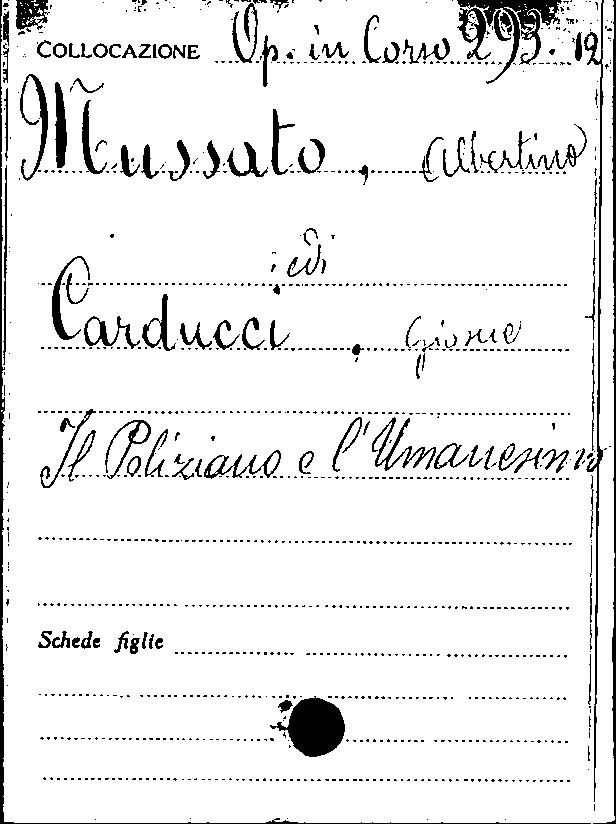 COLLOCAZIONE Op. in Corso 293. 12
Mussato, Albertino
: edi
Carducci, Giosue
Il Poliziano e l'Umanesimo
Schede figlie